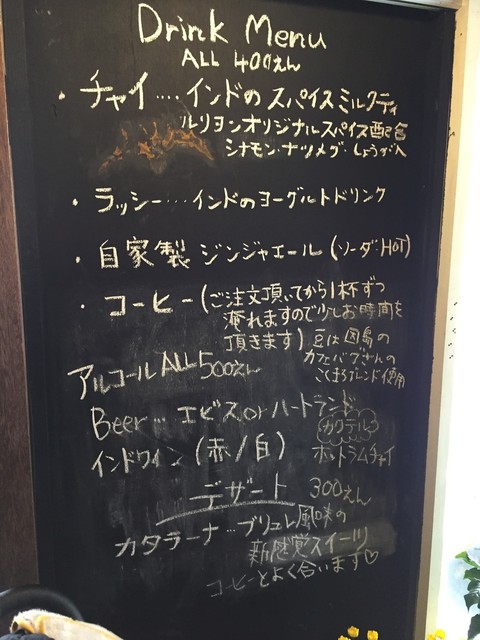 Drink Menu
ALL 400えん
・チャイ‥‥インドのスパイスミルクティ
ルリヨンオリジナルスパイス配合
シナモン・ナツメグ・しょうが入
・ラッシー‥‥インドのヨーグルトドリンク
・自家製ジンジャエール(ソーダ・HOT)
・コーヒー(ご注文頂いてから1杯ずつ
淹れますので少しお時間を
頂きます)
豆は因島の
カフェバグさんの
こくまろブレンド使用
アルコールALL500えん
Beer‥‥エビスorハートランド
インドワイン(赤/白)
カクテル
ホットラムチャイ
デザート 300えん
カタラーナ‥‥ブリュレ風味の
新感覚スイーツ
コーヒーとよく合います♡